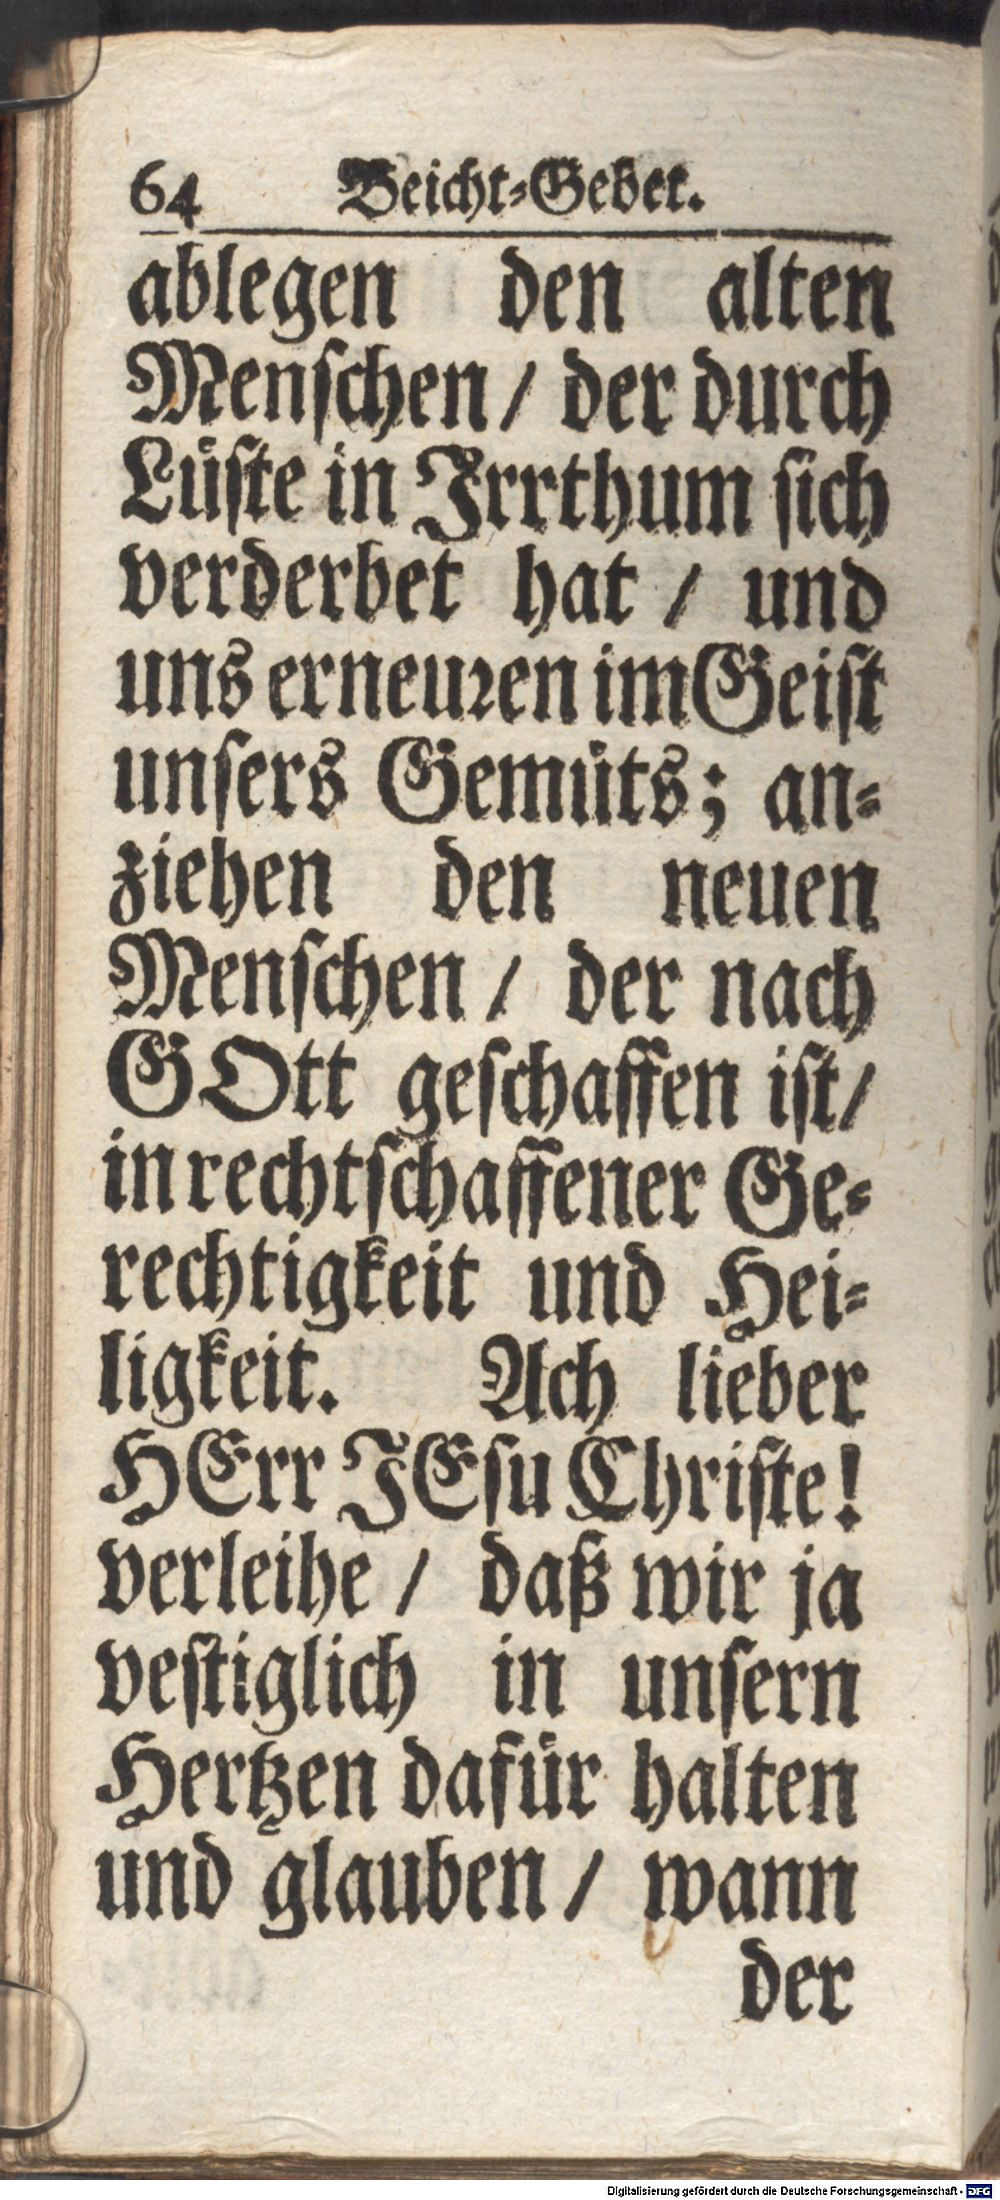 64 Beicht-Gebet.
ablegen den alten
Menschen / der durch
Lüste in Irrthum sich
verderbet hat / und
uns erneuren im Geist
unsers Gemüts; an-
ziehen den neuen
Menschen / der nach
GOtt geschaffen ist /
in rechtschaffener Ge-
rechtigkeit und Hei-
ligkeit. Ach lieber
HErr JEsu Christe!
verleihe / daß wir ja
vestiglich in unsern
Hertzen dafür halten
und glauben / wann
der
Digitalisierung gefördert durch die Deutsche Forschungsgemeinschaft - DFG